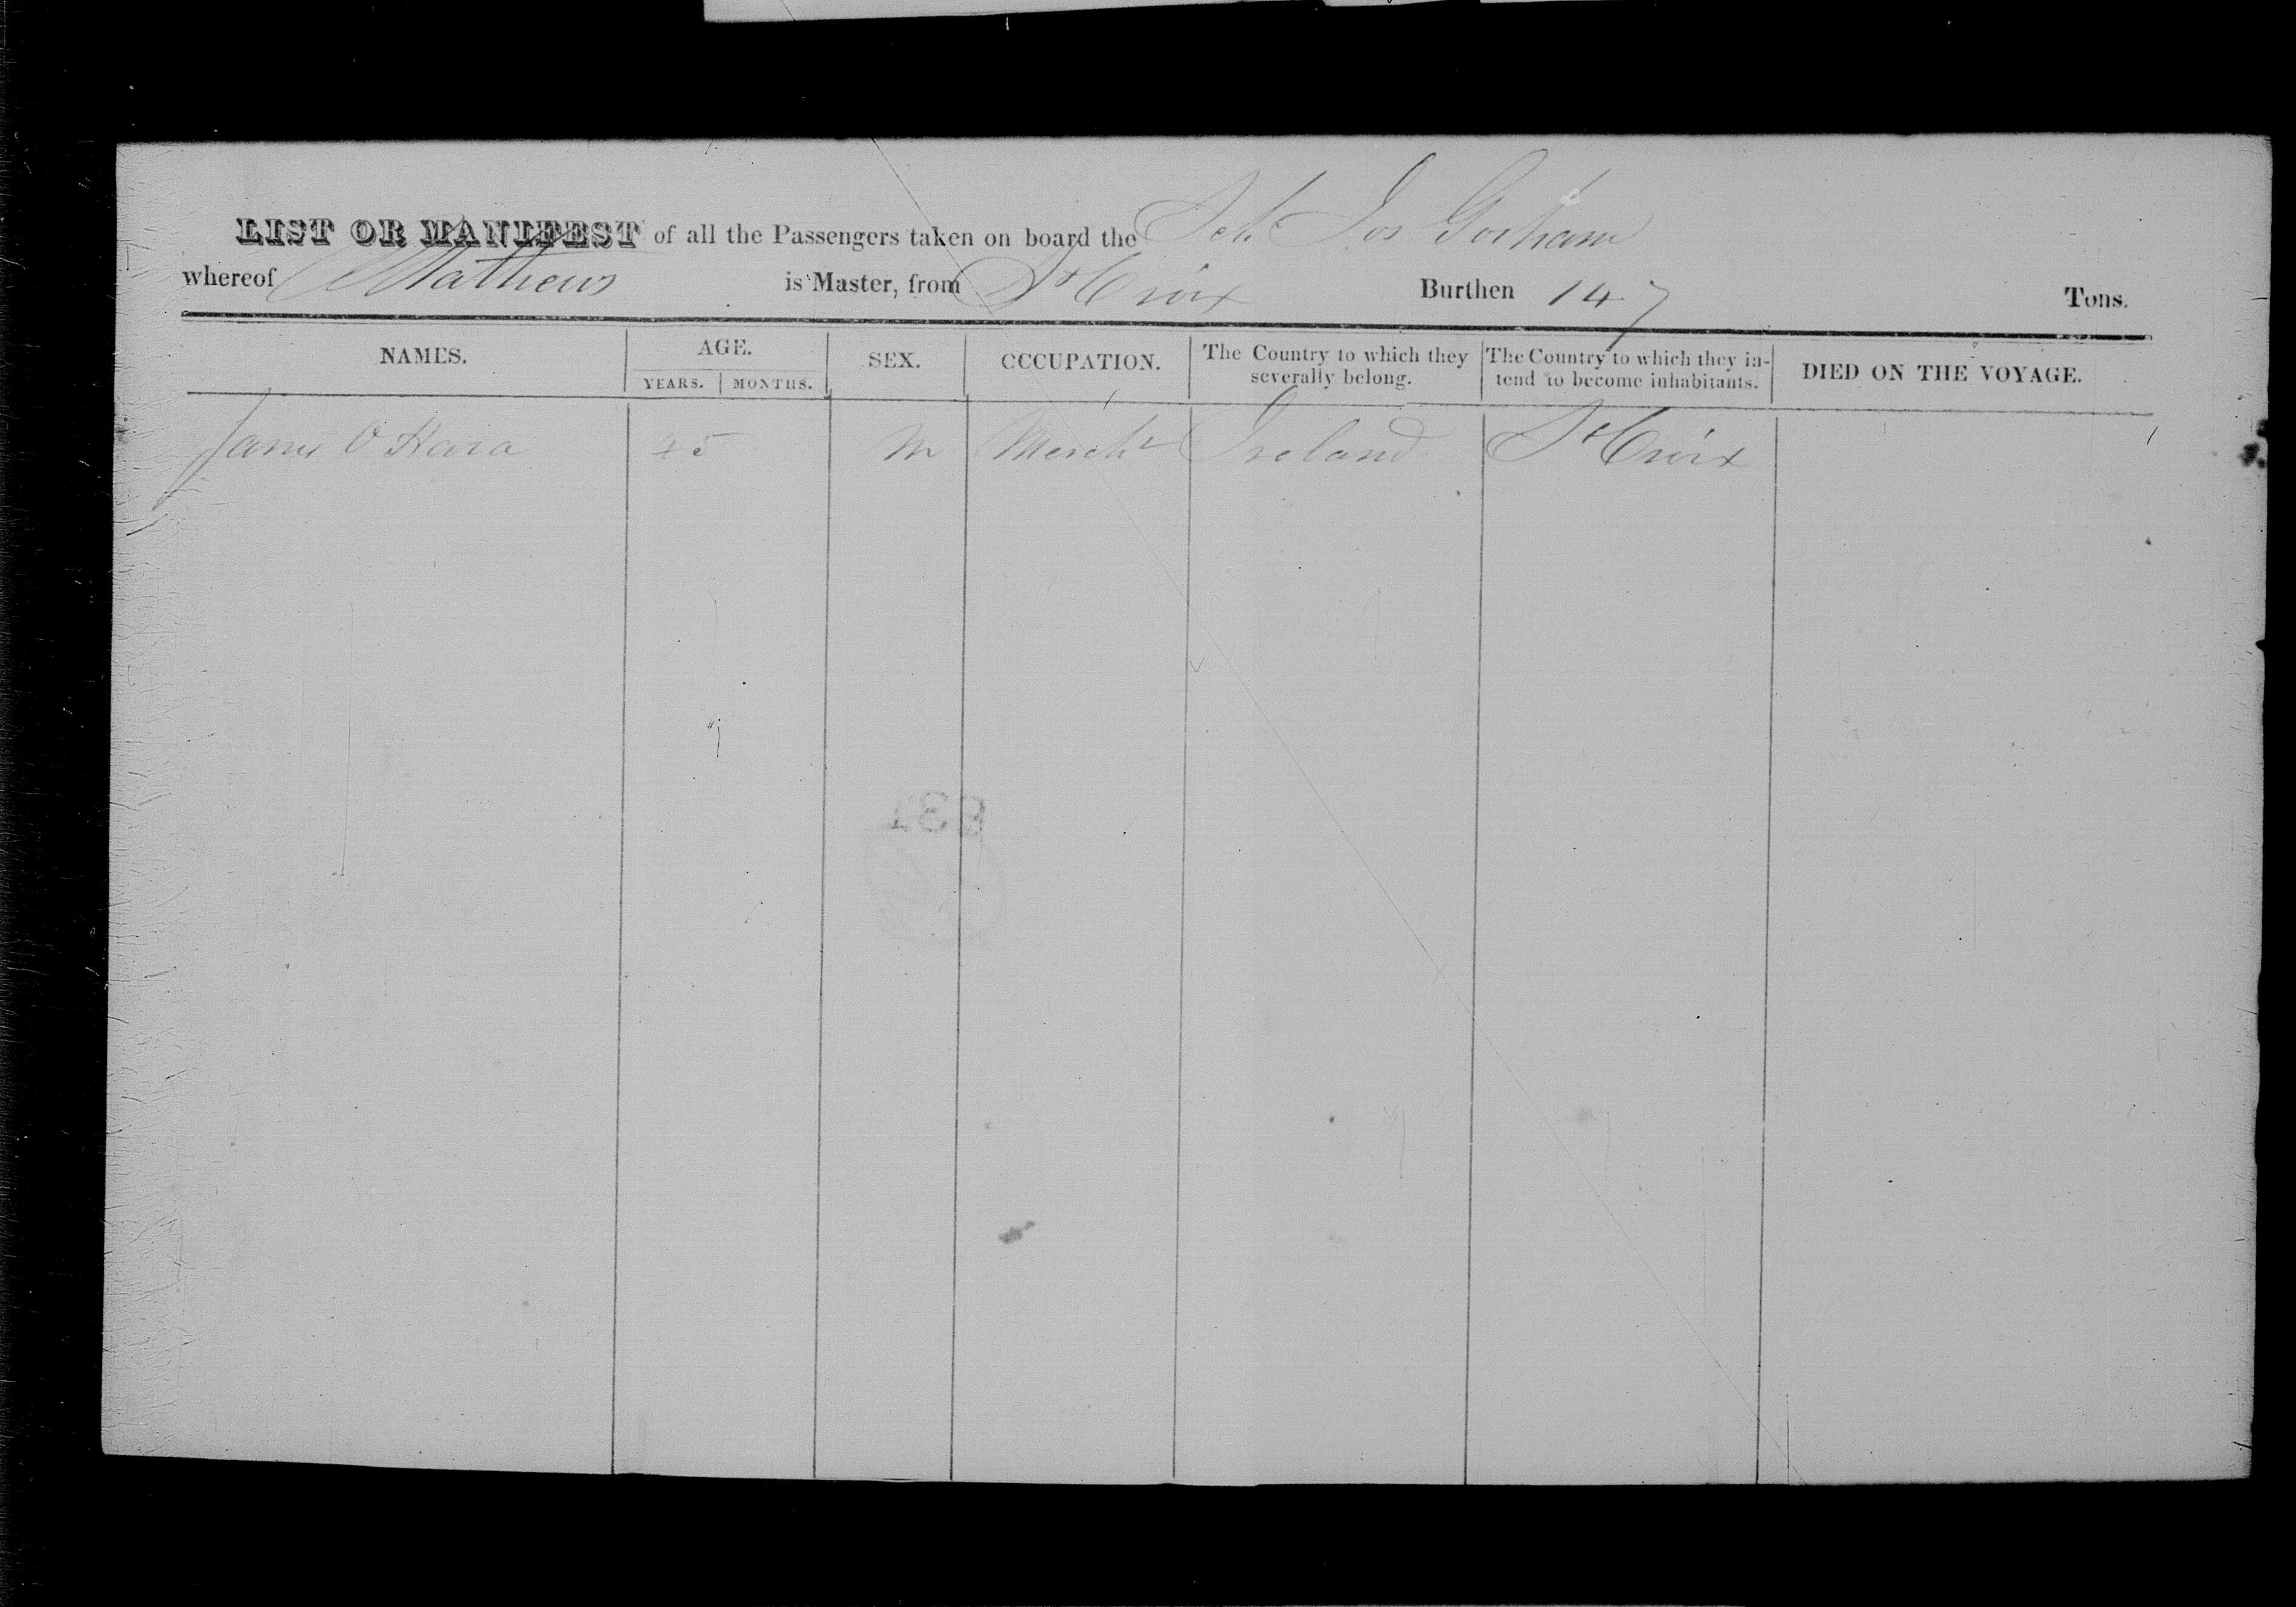 LIST OR MANIFEST of all the Passengers taken on board the Sch Jos Gorham
whereof Mathews is Master, from St Croix Burthen 147 Tons.
NAMES. AGE. SEX. OCCUPATION. The Country to which they severally belong. The Country to which they intend to become inhabitants. DIED ON THE VOYAGE.
YEARS. MONTHS.
James O Hara 45 M Mercht Ireland St Croix
831